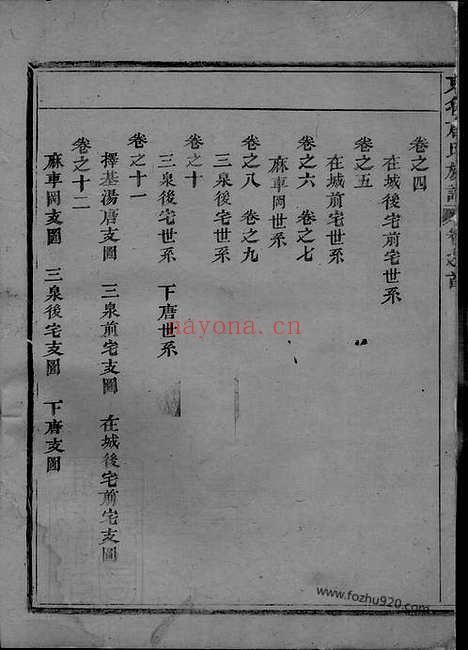 卷之四
在城後宅前宅世系
卷之五
在城前宅世系
卷之六 卷之七
麻車岡世系
卷之八 卷之九
三泉後宅世系
卷之十
三泉後宅世系 下唐世系
卷之十一
擇基湯唐支圖 三泉前宅支圖 在城後宅前宅支圖
卷之十二
麻車岡支圖 三泉後宅支圖 下唐支圖
氏族譜 卷之首
nayona.cn
www.fozhu920.com